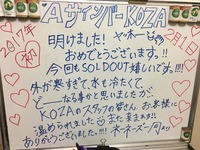 Aサインバー KOZA
2017年
初
2月1日
明けました!ヤーホー
おめでとうございます!!
今回もSOLDOUT嬉しいです!!!
外が寒すぎて水も冷たくて
どーなる事かと思いましたが、
KOZAのスタッフの皆さん、お客様に
温められました またまたまたの
ありがとうございました!!!!ネーネーズ一同より